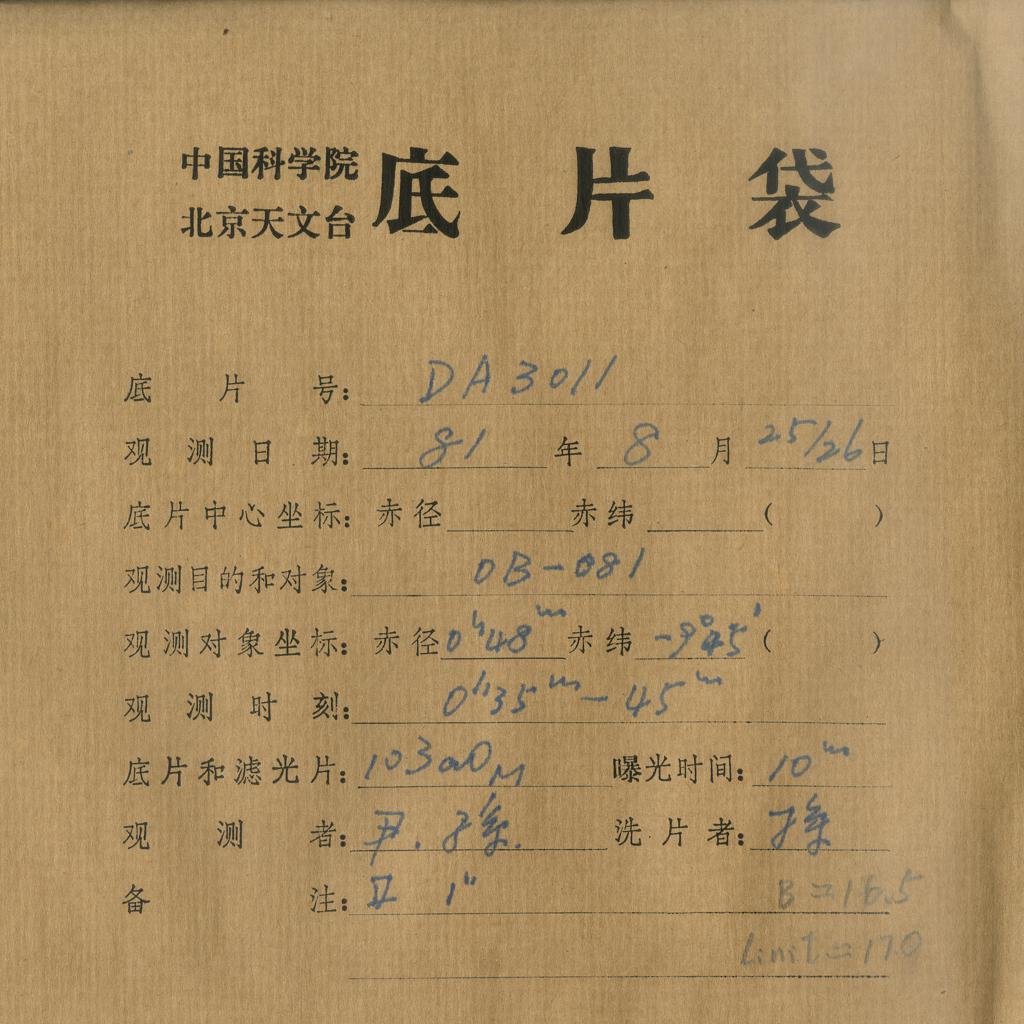 中国科学院
北京天文台 底片袋
底片号: DA3011
观测日期: 81年8月25/26日
底片中心坐标: 赤径 赤纬 ( )
观测目的和对象: OB-081
观测对象坐标: 赤径0h48m赤纬-9°45′( )
观测时刻: 0h35m-45m
底片和滤光片: 103aO 曝光时间: 10m
观测者: 尹. 洗片者:
备注: II 1" B=16.5
Limit=17.0